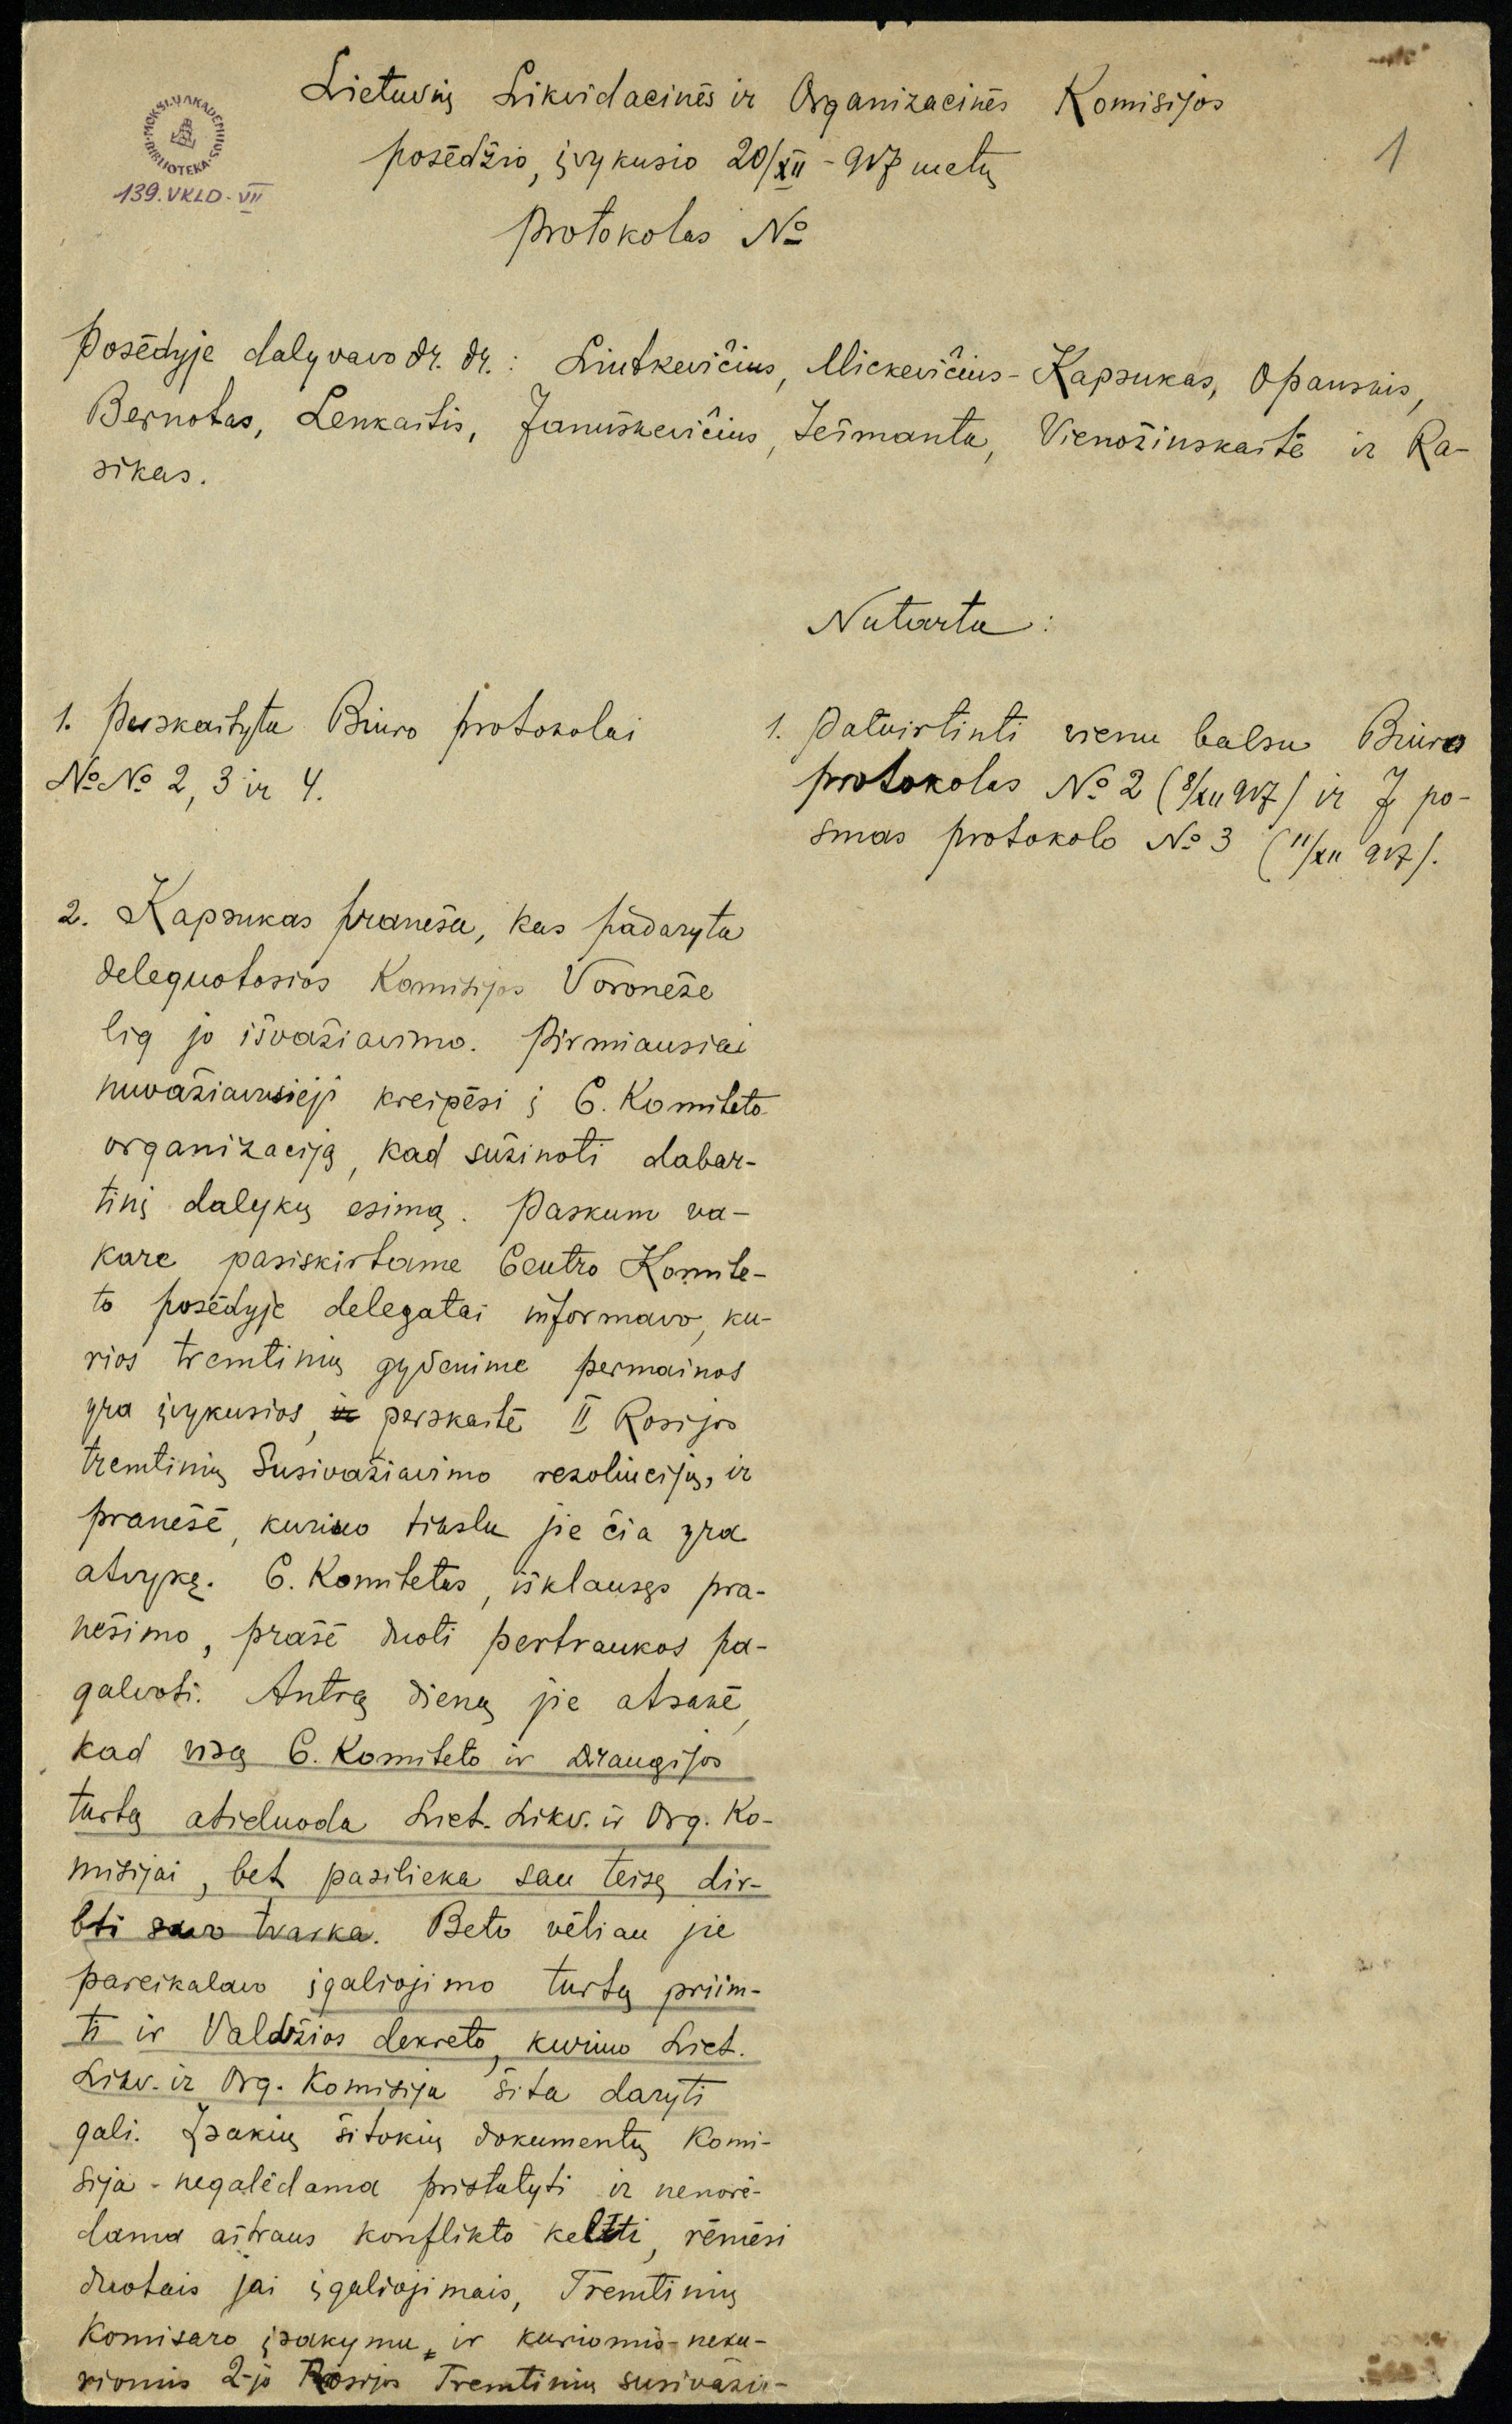 Lietuvių Likvidacinės ir Organizacinės Komisijos
posēdžio, įvykusio 20/XII - 917 metų
protokolas №
1
MOKSLŲ AKADEMIJOS BIBLIOTEKA
139. VKLD - VII
Posēdyje dalyvavo dr. dr.: Liutkevičius, Mickevičius - Kapsukas, Opanskis,
Bernotas, Lenkaitis, Januškevičius, Ješmanta, Vienožinskaitē ir Ra-
sikas.
Nutarta:
1. Perskaityta Biuro protokolai
№ № 2, 3 ir 4.
1. Patvirtinti vienu balsu Biuro
protokolas № 2 (8/XII 917) ir I po-
smas protokolo № 3 (11/XII 917).
2. Kapsukas praneša, kas padaryta
deleguotosios Komisijos Voroneže
lig jo išvažiavimo. Pirmiausiai
nuvažiavusieji kreipēsi į C. Komiteto
organizaciją, kad sužinoti dabar-
tinį dalykų esimą. Paskum va-
kare pasiskirtame Centro Komite-
to posēdyje delegatai informavo, ku-
rios tremtinių gyvenime permainos
yra įvykusios, ir perskaitē II Rosijos
tremtinių Susivažiavimo rezoliucijų, ir
pranešē, kuriuo tikslu jie čia yra
atvykę. C. Komitetas, išklausęs pra-
nešimo, prašē duoti pertraukos pa-
galvoti. Antrą dieną jie atsakē,
kad visą C. Komiteto ir Draugijos
turtą atiduoda Liet. Likv. ir Org. Ko-
misijai, bet pasilieka sau teisę dir-
bti savo tvarka. Beto vēliau jie
pareikalavo įgaliojimo turtą priim-
ti ir Valdžios dekreto, kuriuo Liet.
Likv. ir Org. Komisija šita daryti
gali. Įsakių šitokių dokumentų Komi-
sija - negalēdama pristatyti ir nenorē-
dama aštraus konflikto kelti, rēmēsi
duotais jai įgaliojimais, Tremtinių
Komisaro įsakymu, ir kuriomis-neku-
riomis 2-jo Rosijos Tremtinių susivažia-